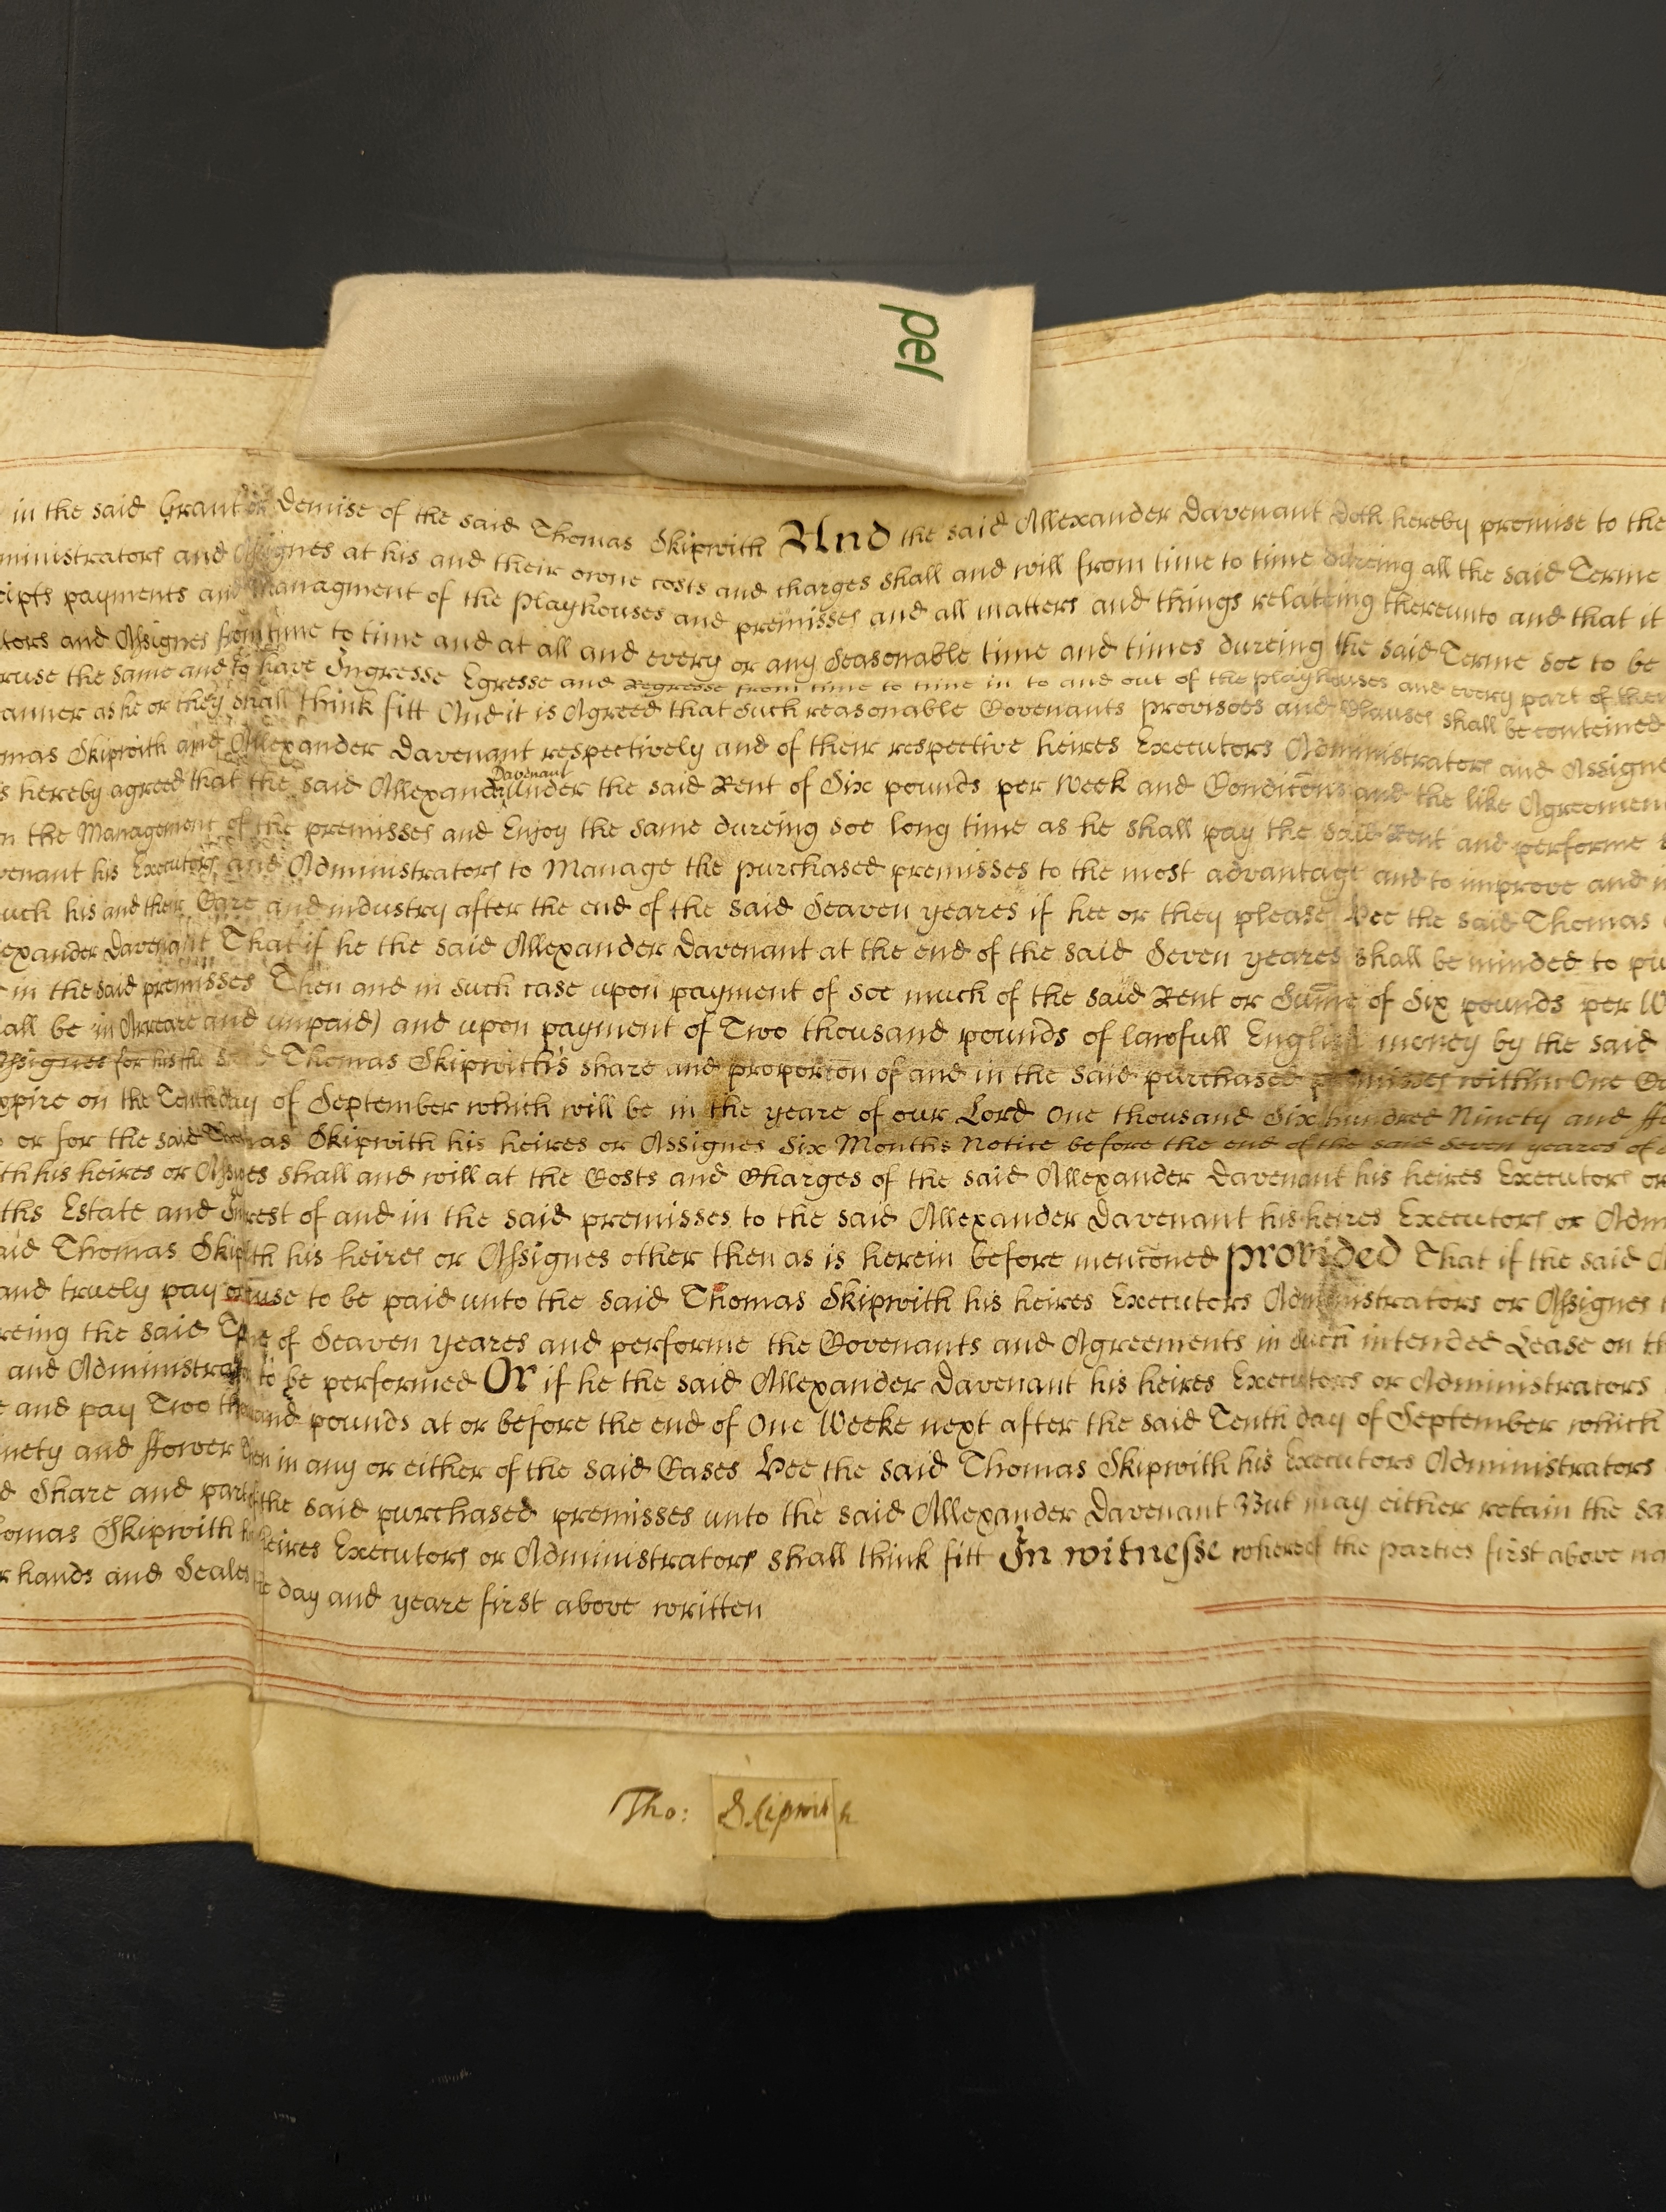 pel
in the said Grant or Demise of the said Thomas Skipwith And the said Allexander Davenant doth hereby promise to the
ministrators and Assignes at his and their owne costs and charges shall and will from time to time dureing all the said Terme
cipts payments and Managment of the Playhouses and premisses and all matters and things relateing thereunto and that it
tors and Assignes from time to time and at all and every or any Seasonable time and times dureing the said Terme soe to be
ruse the same and to have Ingresse Egresse and Regresse from time to time in to and out of the playhouses and every part of them
anner as he or they shall think fitt And it is Agreed that such reasonable Covenants Provisoes and Clauses shall be conteined
omas Skipwith and Allexander Davenant respectively and of their respective heires Executors Administrators and Assigne
s hereby agreed that the said Allexander Davenant under the said Rent of Six pounds per Week and Condicons and the like Agreemen
n the Management of the premisses and Enjoy the same dureing soe long time as he shall pay the said Rent and performe
venant his Executors and Administrators to Manage the purchased premisses to the most advantage and to improve and
uch his and their Care and industry after the end of the said Seaven yeares if hee or they please Hee the said Thomas
exander Davenant That if he the said Allexander Davenant at the end of the said Seven yeares shall be minded to pu
in the said premisses Then and in such case upon payment of soe much of the said Rent or Sume of Six pounds per W
all be in Arreare and unpaid) and upon payment of Two thousand pounds of lawfull English money by the said
Assignes for his the said Thomas Skipwith's share and proporcon of and in the said purchased premisses within One
xpire on the Tenth day of September which will be in the yeare of our Lord One thousand Six hundred Ninety and ff
or for the said Thomas Skipwith his heires or Assignes Six Months Notice before the end of the said Seven yeares of
th his heires or Assignes shall and will at the Costs and Charges of the said Allexander Davenant his heires Executors or
ths Estate and Interest of and in the said premisses to the said Allexander Davenant his heires Executors or Adm
aid Thomas Skipwith his heires or Assignes other then as is herein before menconed provided That if the said
and truely pay or cause to be paid unto the said Thomas Skipwith his heires Executors Administrators or Assignes
reing the said Terme of Seaven yeares and performe the Covenants and Agreements in such intended Lease on th
and Administrators to be performed Or if he the said Allexander Davenant his heires Executors or Administrators
e and pay Two thousand pounds at or before the end of One Weeke next after the said Tenth day of September which
inety and ffower then in any or either of the said Cases Hee the said Thomas Skipwith his Executors Administrators
d Share and part of the said purchased premisses unto the said Allexander Davenant But may either retain the sa
omas Skipwith his heires Executors or Administrators shall think fitt In witnesse whereof the parties first above na
r hands and Seales the day and yeare first above written
Tho: Skipwith